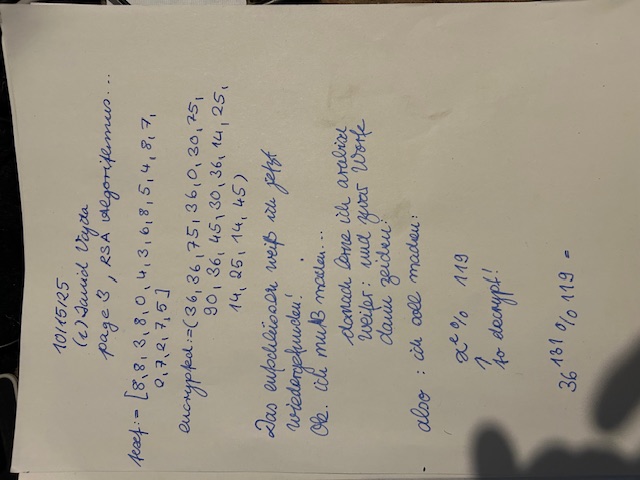 10/15/25
(c) David Vajda
page 3, RSA Algorithmus...
text:= [8,8,3,8,0,4,3,6,8,5,4,8,7,
0,7,2,7,5]
encrypted:=(36,36,75,36,0,30,75,
90,36,45,30,36,14,25,
14,25,14,45)
Das entschlüsseln weiß ich jetzt
wiedergefunden!
Ok. ich muß machen...
danach lerne ich arabisch
weiter: und zwar Worte
dann zeichen!
also: ich soll machen:
x^e % 119
↑
to decrypt!
36^131 % 119 =